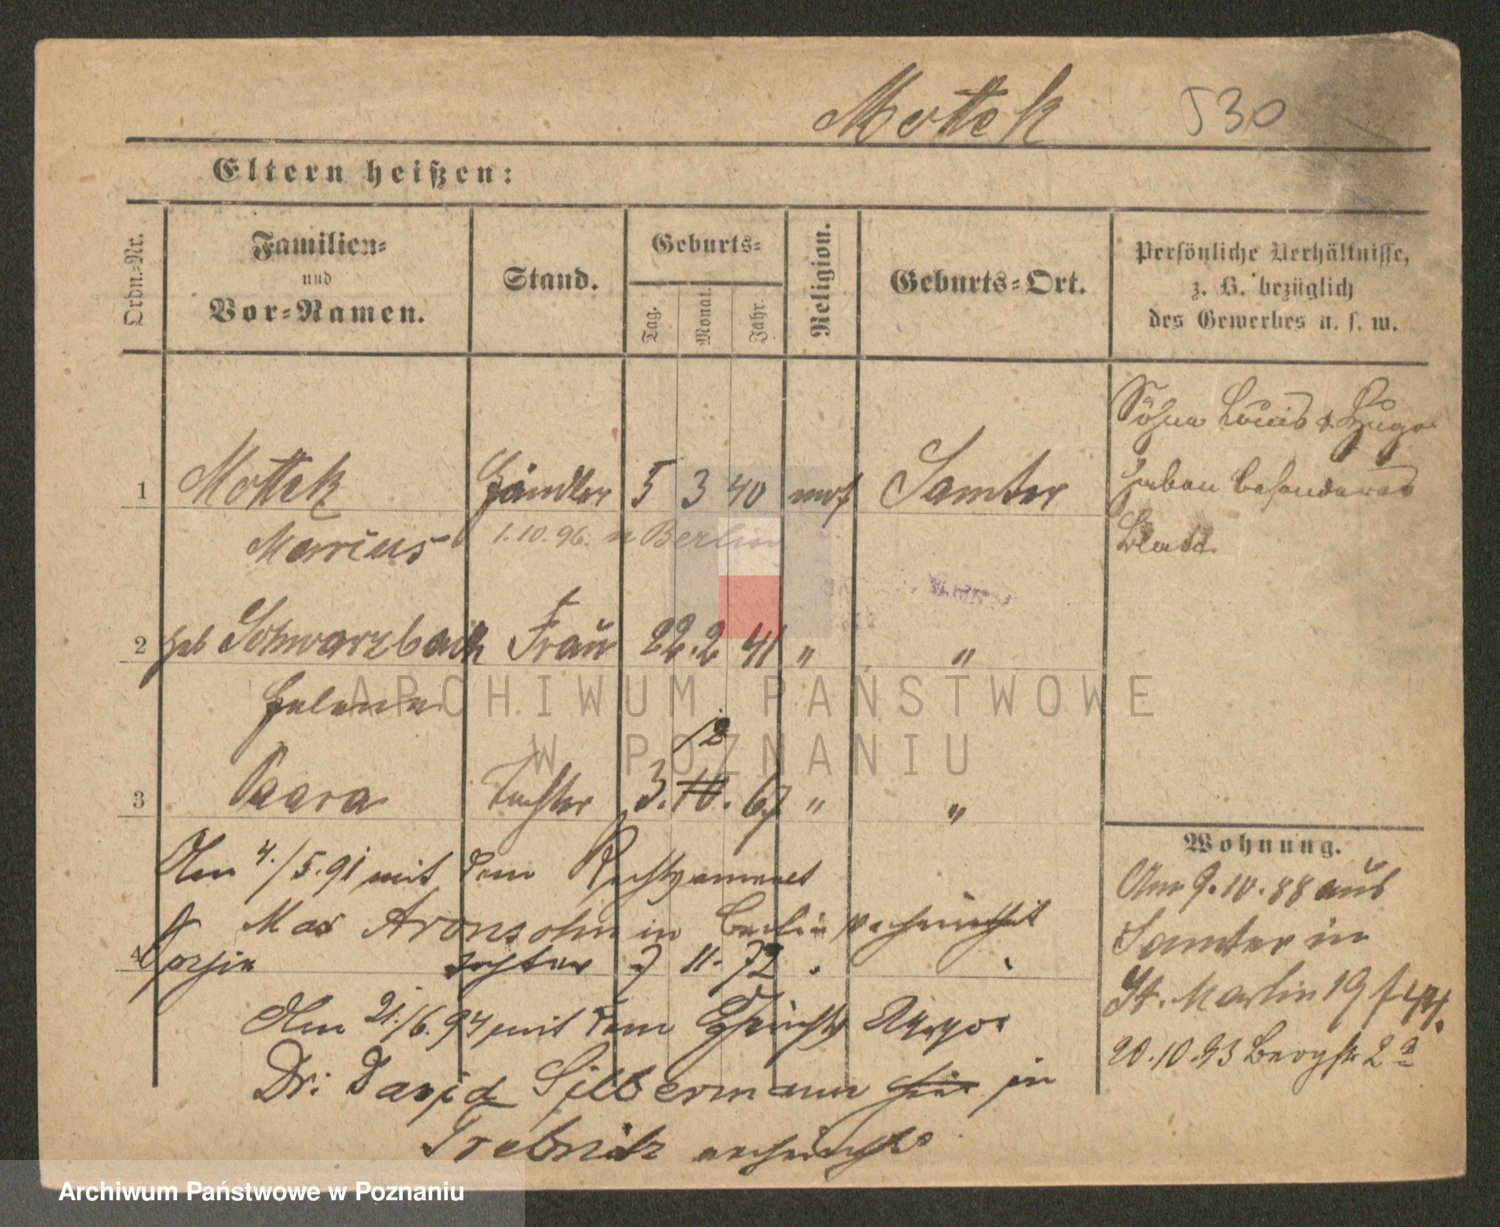 Mottek 530
Eltern heißen:
Ordn.-Nr.
Familien-
und
Vor-Namen.
Stand.
Geburts-
Tag.
Monat.
Jahr.
Religion.
Geburts-Ort.
Persönliche Verhältnisse,
z. B. bezüglich
des Gewerbes u. s. w.
Söhne Louis & Hugo
haben besonderes
Blatt
1 Mottek Händler 5 3 40 mos Samter
Marcus 1.10.96. n Berlin
2 geb Schwarzbach Frau 22. 2 41 " "
Helene
12
3 Tochter 3. 10. 67 " "
Am 4./5.91 mit dem
Max Aronsohn in Berlin verheirathet
4 Tochter 7 11. 72
Am 21./6.94 mit dem
Dr. David Silbermann hier in
Trebnitz verheirathet
Wohnung.
Am 9.10.88 aus
Samter in
St. Martin 19
20.10.93 Bergstr 2a
ARCHIWUM PAŃSTWOWE
W POZNANIU
Archiwum Państwowe w Poznaniu